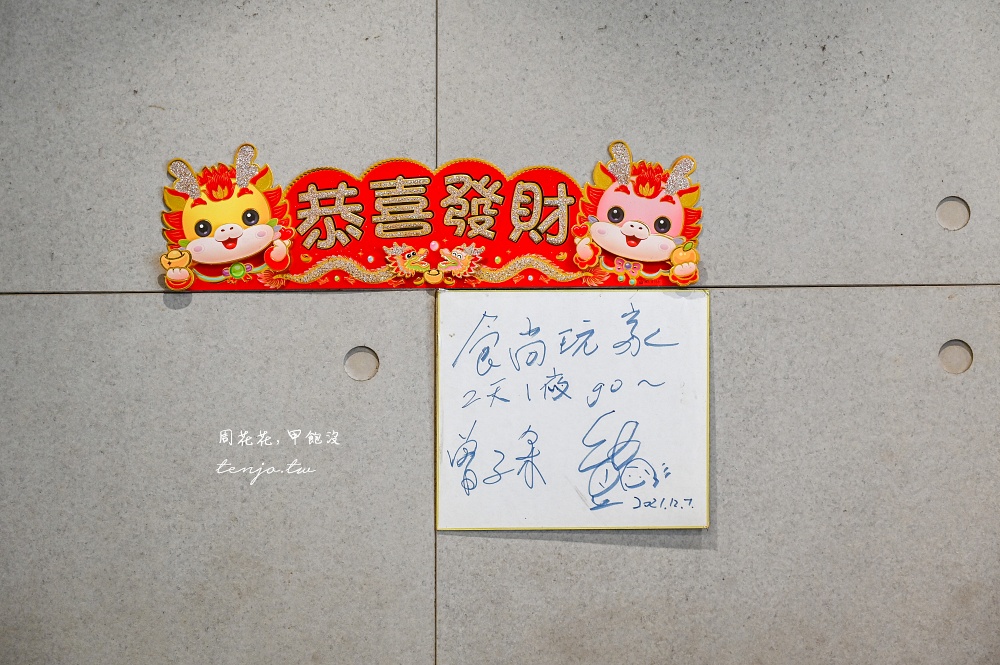 恭喜發財
食尚玩家
2天1夜go~
曾子余
2021.12.7.
周花花,甲飽沒
tenjo.tw